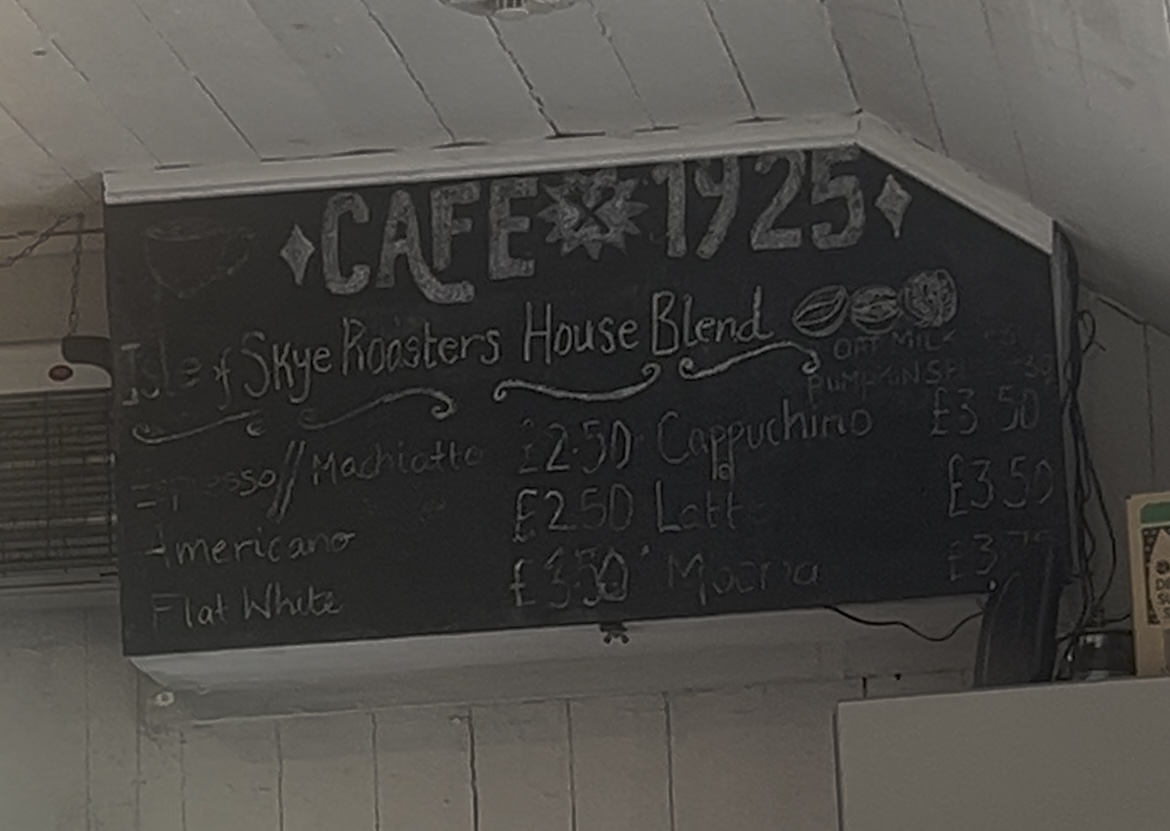 CAFE 1925
Isle of Skye Roasters House Blend
OAT MILK
PUMPKIN
Espresso//Machiatto £2.50 Cappuchino £3.50
Americano £2.50 Latte £3.50
Flat White £3.50 Mocha £3.75